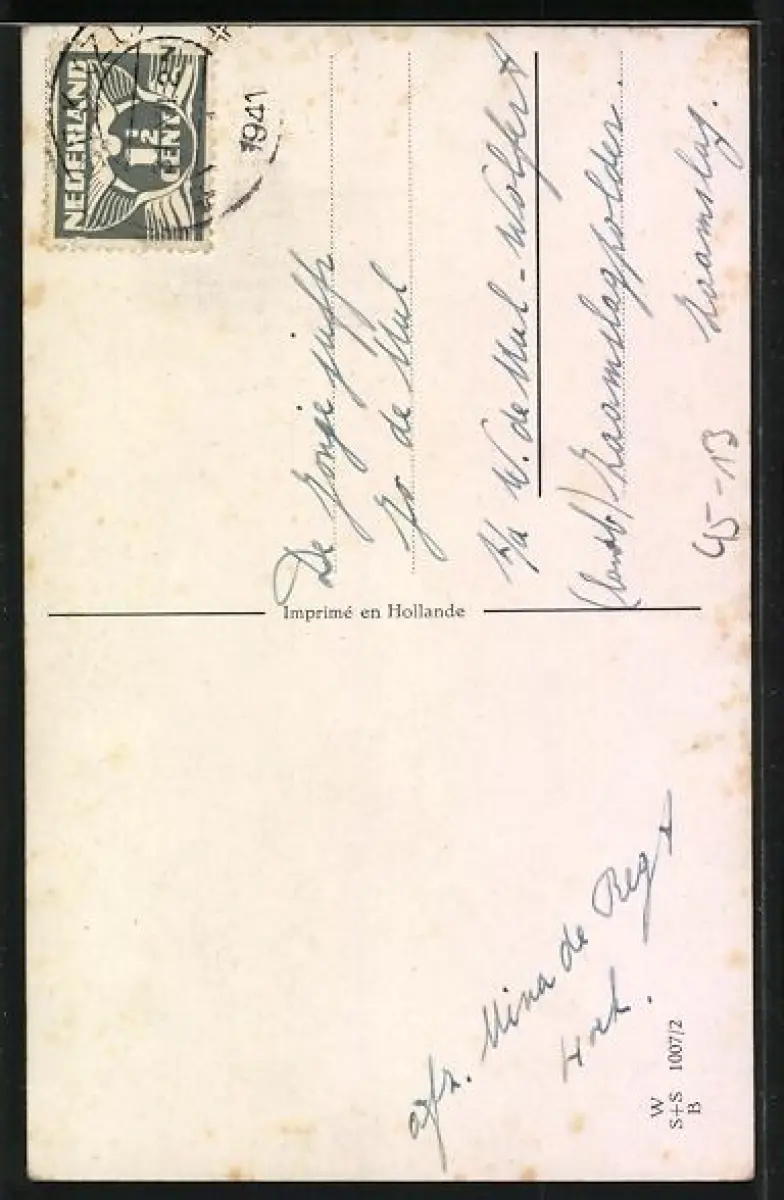 NEDERLAND
1½
CENT
1941
De Jonge juffr
Jo de Mul
p/a W. de Mul-Wolfert
Zaamslagpolder.
Zaamslag.
45-13
Imprimé en Hollande
afz. Mina de Regt
Hoek.
W
S+S 1007/2
B